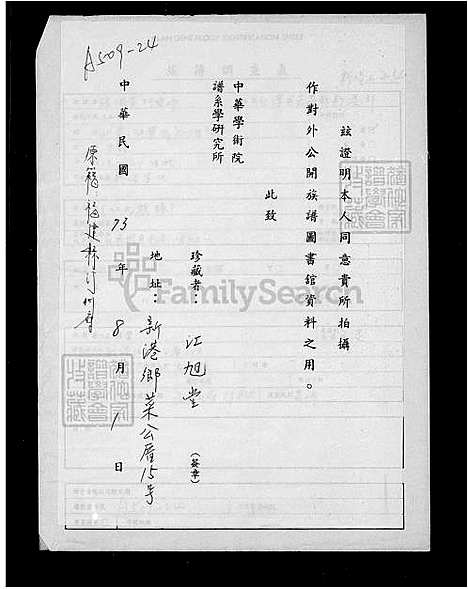 A509-24
茲證明本人同意貴所拍攝
作對外公開族譜圖書館資料之用。
此致
中華學術院
譜系學研究所
珍藏者：江旭堂（簽章）
地址：新港鄉菜公厝15号
中華民國73年8月1日
原籍：福建
FamilySearch